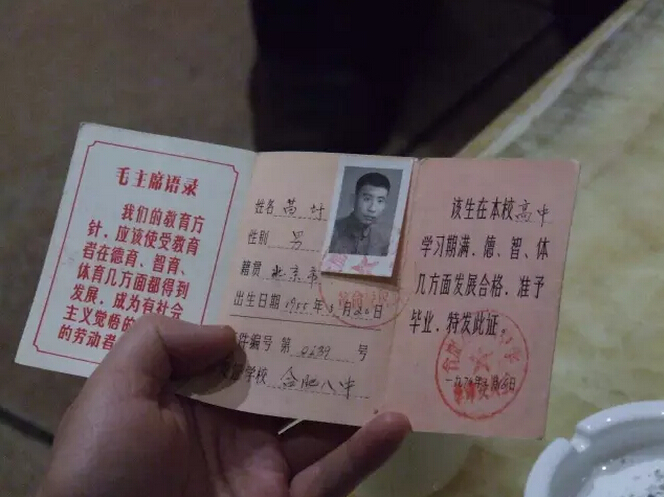 毛主席语录
我们的教育方
针，应该使受教育
者在德育、智育、
体育几方面都得到
发展，成为有社会
主义觉悟的
的劳动者
姓名 苗叶
性别 男
籍贯 北京市
出生日期 1955年
件编号 第 0239 号
学校 合肥八中
该生在本校高中
学习期满，德、智、体
几方面发展合格，准予
毕业，特发此证